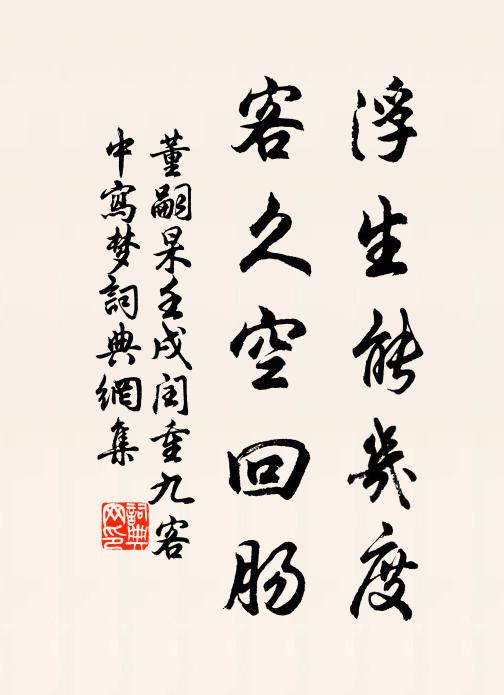 浮生能幾度
客久空回肠
董嗣杲壬戌闰重九客
中寫梦詞典網集
詞典网印